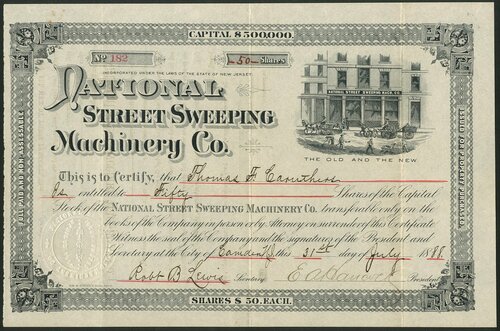 CAPITAL $500,000.
No 182
50 Shares
INCORPORATED UNDER THE LAWS OF THE STATE OF NEW JERSEY.
NATIONAL
STREET SWEEPING
Machinery Co.
NATIONAL STREET SWEEPING MACH. CO.
THE OLD AND THE NEW
FULL PAID AND NON ASSESSABLE
This is to Certify, that Thomas F. Caruthers
is entitled to Fifty Shares of the Capital
Stock of the NATIONAL STREET SWEEPING MACHINERY CO. transferable only on the
books of the Company in person or by Attorney on surrender of this Certificate
Witness the seal of the Company and the signatures of the President and
Secretary at the City of Camden NJ. this 31st day of July 1888
Robt B Lewis
President
SHARES $50. EACH.